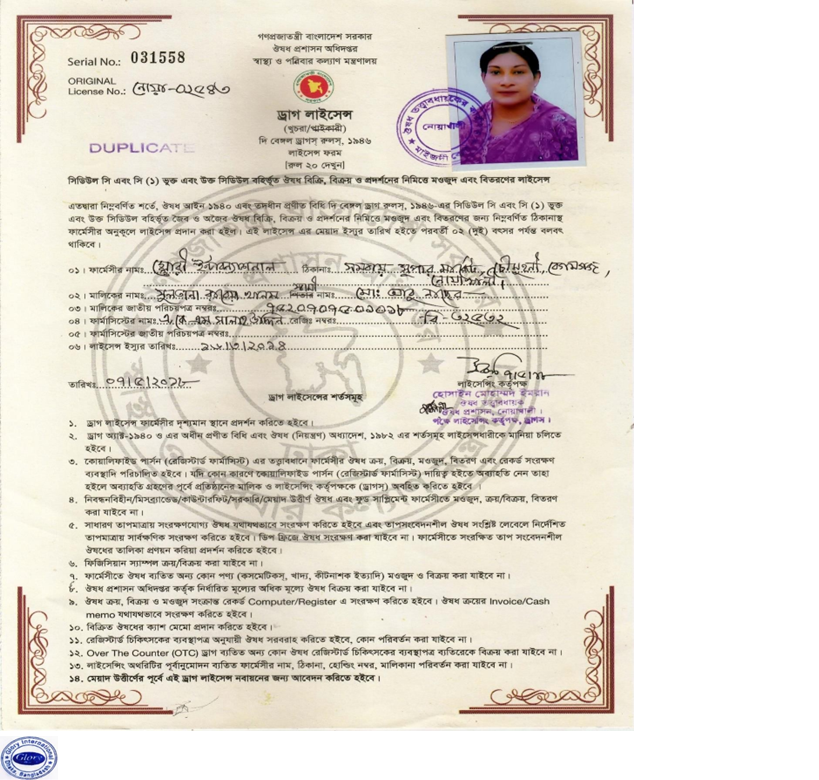 গণপ্রজাতন্ত্রী বাংলাদেশ সরকার
ঔষধ প্রশাসন অধিদপ্তর
স্বাস্থ্য ও পরিবার কল্যাণ মন্ত্রণালয়
Serial No.: 031558
ORIGINAL
License No.:
DUPLICATE
ড্রাগ লাইসেন্স
(খুচরা/পাইকারী)
দি বেঙ্গল ড্রাগস্ রুলস্, ১৯৪৬
লাইসেন্স ফরম
[রুল ২০ দেখুন]
নোয়াখালী
সিডিউল সি এবং সি (১) ভুক্ত এবং উক্ত সিডিউল বহির্ভূত ঔষধ বিক্রি, বিক্রয় ও প্রদর্শনের নিমিত্তে মওজুদ এবং বিতরণের লাইসেন্স
এতদ্বারা নিম্নবর্ণিত শর্তে, ঔষধ আইন ১৯৪০ এবং তদধীন প্রণীত বিধি দি বেঙ্গল ড্রাগ রুলস্, ১৯৪৬-এর সিডিউল সি এবং সি (১) ভুক্ত
এবং উক্ত সিডিউল বহির্ভূত জৈব ও অজৈব ঔষধ বিক্রি, বিক্রয় ও প্রদর্শনের নিমিত্তে মওজুদ এবং বিতরণের জন্য নিম্নবর্ণিত ঠিকানাস্থ
ফার্মেসীর অনুকূলে লাইসেন্স প্রদান করা হইল। এই লাইসেন্স এর মেয়াদ ইস্যুর তারিখ হইতে পরবর্তী ০২ (দুই) বৎসর পর্যন্ত বলবৎ
থাকিবে।
০১। ফার্মেসীর নামঃ ঠিকানাঃ সমবায় সুপার মার্কেট, বেগমগঞ্জ,
নোয়াখালী।
০২। মালিকের নামঃ নামঃ মোঃ আবু
০৩। মালিকের জাতীয় পরিচয়পত্র নম্বরঃ
০৪। ফার্মাসিস্টের নামঃ এ.কে.এম.সালাহ উদ্দিন রেজিঃ নম্বরঃ
০৫। ফার্মাসিস্টের জাতীয় পরিচয়পত্র নম্বরঃ
০৬। লাইসেন্স ইস্যুর তারিখঃ
তারিখঃ
লাইসেন্সিং কর্তৃপক্ষ
হোসাইন মোহাম্মদ ইমরান
ঔষধ তত্ত্বাবধায়ক
ঔষধ প্রশাসন, নোয়াখালী।
ড্রাগ লাইসেন্সের শর্তসমূহ
১। ড্রাগ লাইসেন্স ফার্মেসীর দৃশ্যমান স্থানে প্রদর্শন করিতে হইবে।
২। ড্রাগ অ্যাক্ট-১৯৪০ ও এর অধীন প্রণীত বিধি এবং ঔষধ (নিয়ন্ত্রণ) অধ্যাদেশ, ১৯৮২ এর শর্তসমূহ লাইসেন্সধারীকে মানিয়া চলিতে
হইবে।
৩। কোয়ালিফাইড পার্সন (রেজিস্টার্ড ফার্মাসিস্ট) এর তত্ত্বাবধানে ফার্মেসীর ঔষধ ক্রয়, বিক্রয়, মওজুদ, বিতরণ এবং রেকর্ড সংরক্ষণ
ব্যবস্থাদি পরিচালিত হইবে। যদি কোন কারণে কোয়ালিফাইড পার্সন (রেজিস্টার্ড ফার্মাসিস্ট) দায়িত্ব হইতে অব্যাহতি নেন তাহা
হইলে অব্যাহতি গ্রহণের পূর্বে প্রতিষ্ঠানের মালিক ও লাইসেন্সিং কর্তৃপক্ষকে (ড্রাগস্) অবহিত করিতে হইবে।
৪। নিবন্ধনবিহীন/মিসব্র্যান্ডেড/কাউন্টারফিট/সরকারি/মেয়াদ উত্তীর্ণ ঔষধ এবং ফুড সাপ্লিমেন্ট ফার্মেসীতে মওজুদ, ক্রয়/বিক্রয়, বিতরণ
করা যাইবে না।
৫। সাধারণ তাপমাত্রায় সংরক্ষণযোগ্য ঔষধ যথাযথভাবে সংরক্ষণ করিতে হইবে এবং তাপসংবেদনশীল ঔষধ সংশ্লিষ্ট লেবেলে নির্দেশিত
তাপমাত্রায় সার্বক্ষণিক সংরক্ষণ করিতে হইবে। ডিপ ফ্রিজে ঔষধ সংরক্ষণ করা যাইবে না। ফার্মেসীতে সংরক্ষিত তাপ সংবেদনশীল
ঔষধের তালিকা প্রণয়ন করিয়া প্রদর্শন করিতে হইবে।
৬। ফিজিসিয়ান স্যাম্পল ক্রয়/বিক্রয় করা যাইবে না।
৭। ফার্মেসীতে ঔষধ ব্যতিত অন্য কোন পণ্য (কসমেটিকস্, খাদ্য, কীটনাশক ইত্যাদি) মওজুদ ও বিক্রয় করা যাইবে না।
৮। ঔষধ প্রশাসন অধিদপ্তর কর্তৃক নির্ধারিত মূল্যের অধিক মূল্যে ঔষধ বিক্রয় করা যাইবে না।
৯। ঔষধ ক্রয়, বিক্রয় ও মওজুদ সংক্রান্ত রেকর্ড Computer/Register এ সংরক্ষণ করিতে হইবে। ঔষধ ক্রয়ের Invoice/Cash
memo যথাযথভাবে সংরক্ষণ করিতে হইবে।
১০। বিক্রিত ঔষধের ক্যাশ মেমো প্রদান করিতে হইবে।
১১। রেজিস্টার্ড চিকিৎসকের ব্যবস্থাপত্র অনুযায়ী ঔষধ সরবরাহ করিতে হইবে, কোন পরিবর্তন করা যাইবে না।
১২। Over The Counter (OTC) ড্রাগ ব্যতিত অন্য কোন ঔষধ রেজিস্টার্ড চিকিৎসকের ব্যবস্থাপত্র ব্যতিরেকে বিক্রয় করা যাইবে না।
১৩। লাইসেন্সিং অথরিটির পূর্বানুমোদন ব্যতিত ফার্মেসীর নাম, ঠিকানা, হোল্ডিং নম্বর, মালিকানা পরিবর্তন করা যাইবে না।
১৪। মেয়াদ উত্তীর্ণের পূর্বে এই ড্রাগ লাইসেন্স নবায়নের জন্য আবেদন করিতে হইবে।
Glory International
Glory
Dhaka, Bangladesh